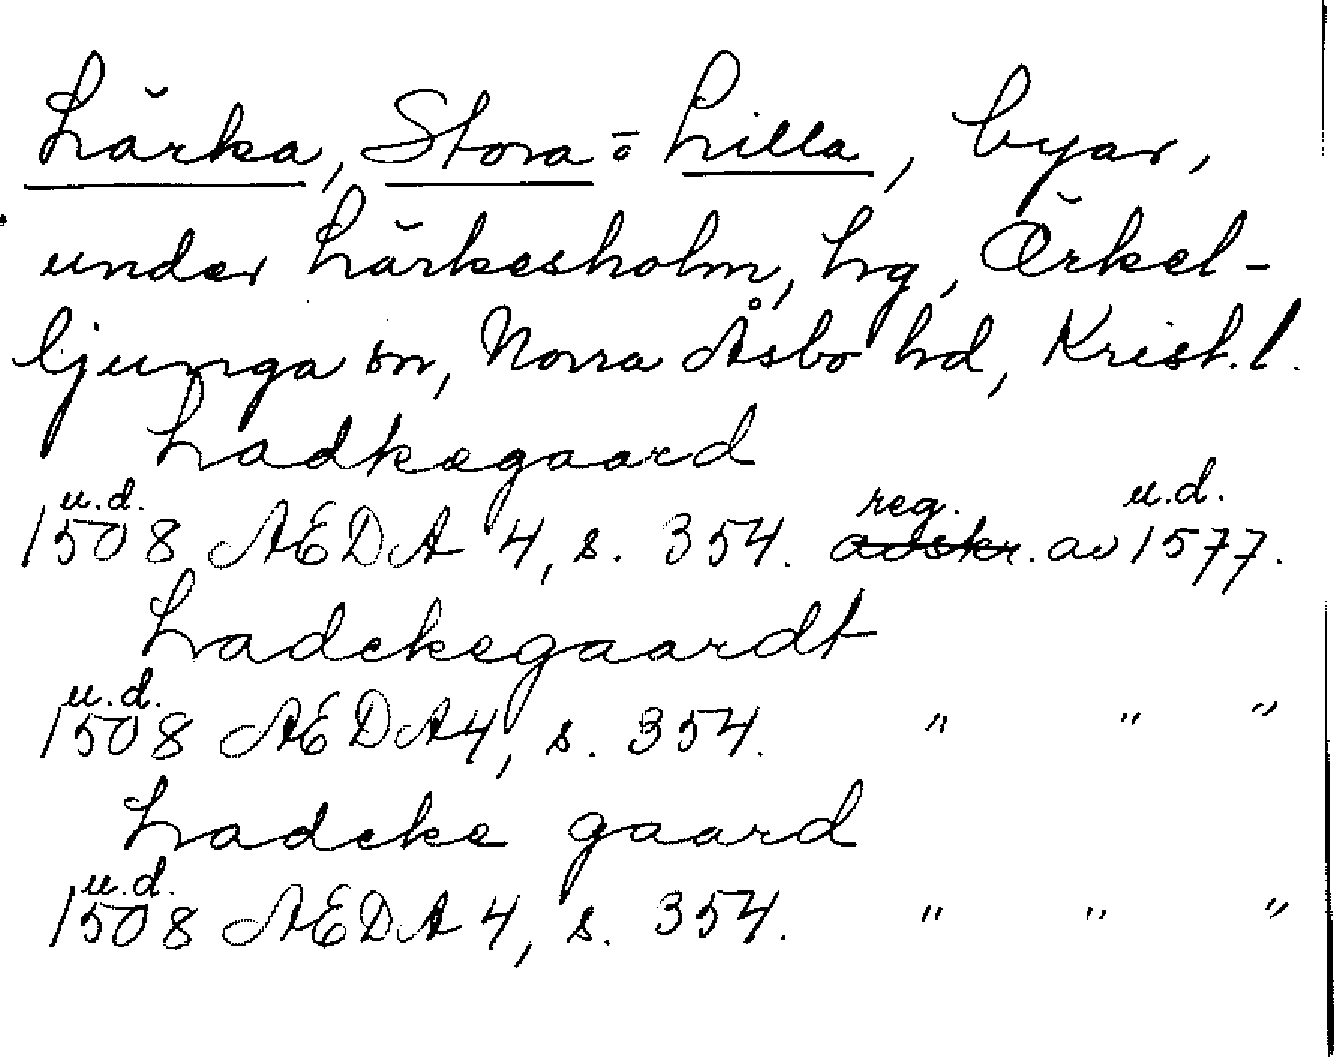 Lärka, Stora o Lilla, byar,
under Lärkesholm, hg, Örkel-
ljunga sn, Norra Åsbo hd, Krist. l.
Ladkegaard
u.d.
1508 AEDA 4, s. 354. reg. adskr. av u.d. 1577.
Ladekegaardt
u.d.
1508 AEDA 4, s. 354. " " "
Ladeke gaard
u.d.
1508 AEDA 4, s. 354. " " "